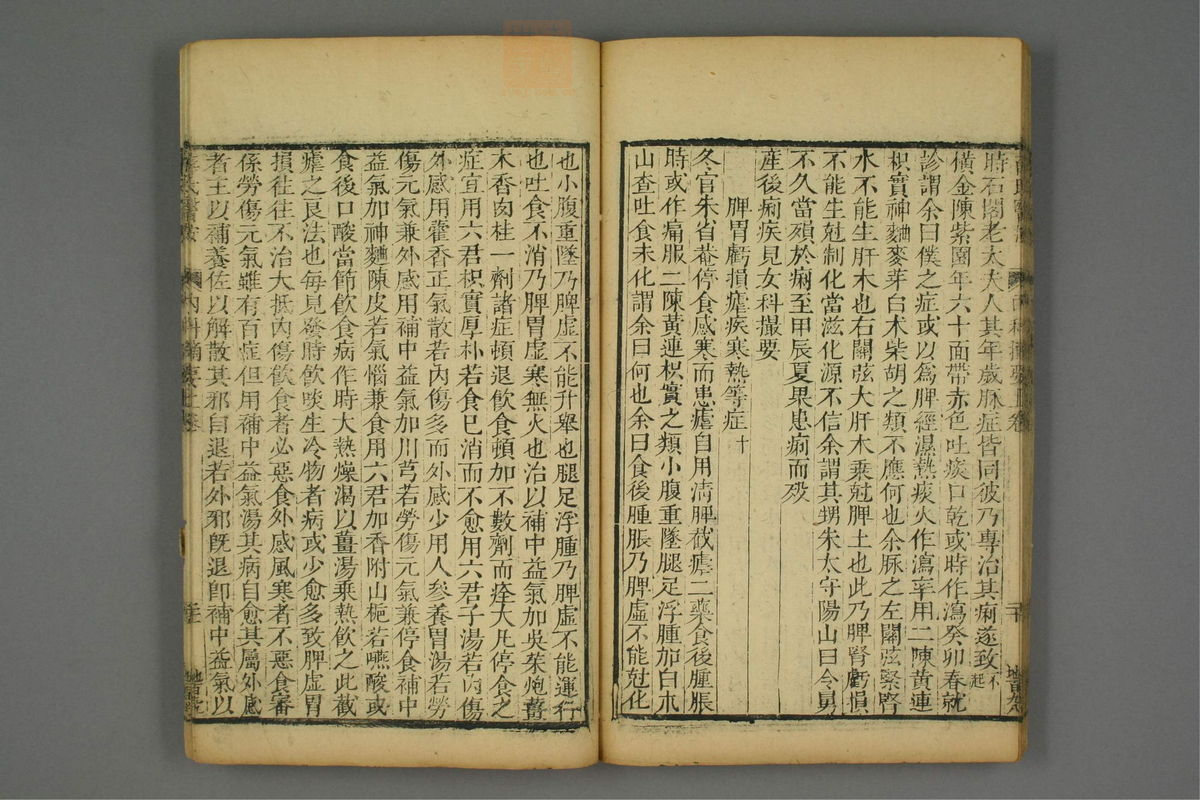 時石閣老太夫人其年歲脉症皆同彼乃專治其痢遂致不起
橫金陳紫園年六十面帶赤色吐痰口乾或時作瀉癸卯春就
診謂余曰僕之症或以爲脾經濕熱痰火作瀉率用二陳黄連
枳實神麯麥芽白术柴胡之類不應何也余脉之左關弦緊腎
水不能生肝木也右關弦大肝木乗尅脾土也此乃脾腎虧損
不能生尅制化當滋化源不信余謂其甥朱太守陽山曰令舅
不久當殞於痢至甲辰夏果患痢而殁
産後痢疾見女科撮要
脾胃虧損瘧疾寒熱等症十
冬官朱省菴停食感寒而患瘧自用清脾截瘧二藥食後腫脹
時或作痛服二陳黄連枳實之類小腹重墜腿足浮腫加白术
山查吐食未化謂余曰何也余曰食後腫脹乃脾虛不能尅化
也小腹重墜乃脾虛不能升舉也腿足浮腫乃脾虛不能運行
也吐食不消乃脾胃虛寒無火也治以補中益氣加吳茱炮薑
木香肉桂一劑諸症頓退飲食頓加不數劑而痊大凡停食之
症宜用六君枳實厚朴若食已消而不愈用六君子湯若内傷
外感用藿香正氣散若内傷多而外感少用人參養胃湯若勞
傷元氣兼外感用補中益氣加川芎若勞傷元氣兼停食補中
益氣加神麯陳皮若氣惱兼食用六君加香附山梔若嚥酸或
食後口酸當節飲食病作時大熱燥渴以薑湯乗熱飲之此截
瘧之良法也每見發時飲啖生冷物者病或少愈多致脾虛胃
損往往不治大抵内傷飲食者必惡食外感風寒者不惡食審
係勞傷元氣雖有百症但用補中益氣湯其病自愈其屬外感
者主以補養佐以解散其邪自退若外邪既退卽補中益氣以